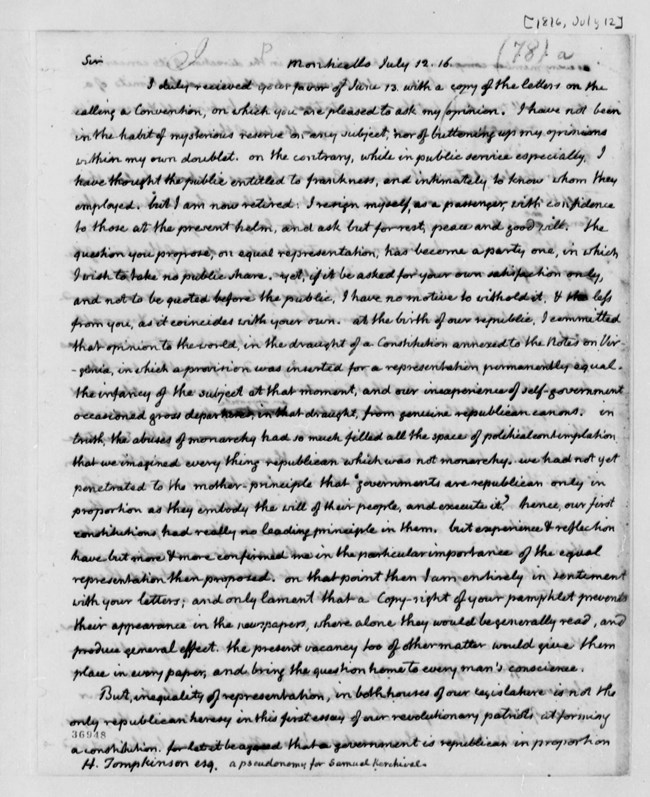 [1816, July 12]
(78) a
Sir Monticello July 12. 16.
I duly recieved your favor of June 13. with a copy of the letters on the
calling a Convention, on which you are pleased to ask my opinion. I have not been
in the habit of mysterious reserve on any subject, nor of buttoning up my opinions
within my own doublet. on the contrary, while in public service especially, I
have thought the public entitled to frankness, and intimately to know whom they
employed. but I am now retired: I resign myself, as a passenger, with confidence
to those at the present helm, and ask but for rest, peace and good will. the
question you propose, on equal representation, has become a party one, in which
I wish to take no public share. yet, if it be asked for your own satisfaction only,
and not to be quoted before the public, I have no motive to withold it, & the less
from you, as it coincides with your own. at the birth of our republic, I committed
that opinion to the world, in the draught of a Constitution annexed to the Notes on Vir-
-ginia, in which a provision was inserted for a representation permanently equal.
the infancy of the subject at that moment, and our inexperience of self-government
occasioned gross departures, in that draught, from genuine republican canons. in
truth, the abuses of monarchy had so much filled all the space of political contemplation
that we imagined every thing republican which was not monarchy. we had not yet
penetrated to the mother-principle that 'governments are republican only in
proportion as they embody the will of their people, and execute it.' hence, our first
constitutions, had really no leading principle in them. but experience & reflection
have but more & more confirmed me in the particular importance of the equal
representation then proposed. on that point then I am entirely in sentiment
with your letters; and only lament that a Copy-right of your pamphlet prevents
their appearance in the newspapers, where alone they would be generally read, and
produce general effect. the present vacancy too of other matter would give them
place in every paper, and bring the question home to every man's conscience.
But, inequality of representation, in both houses of our legislature is not the
only republican heresy in this first essay of our revolutionary patriots at forming
36948
a constitution. for let it be agreed that a government is republican in proportion
H. Tompkinson esq. a pseudonomy for Samuel Kerchival.